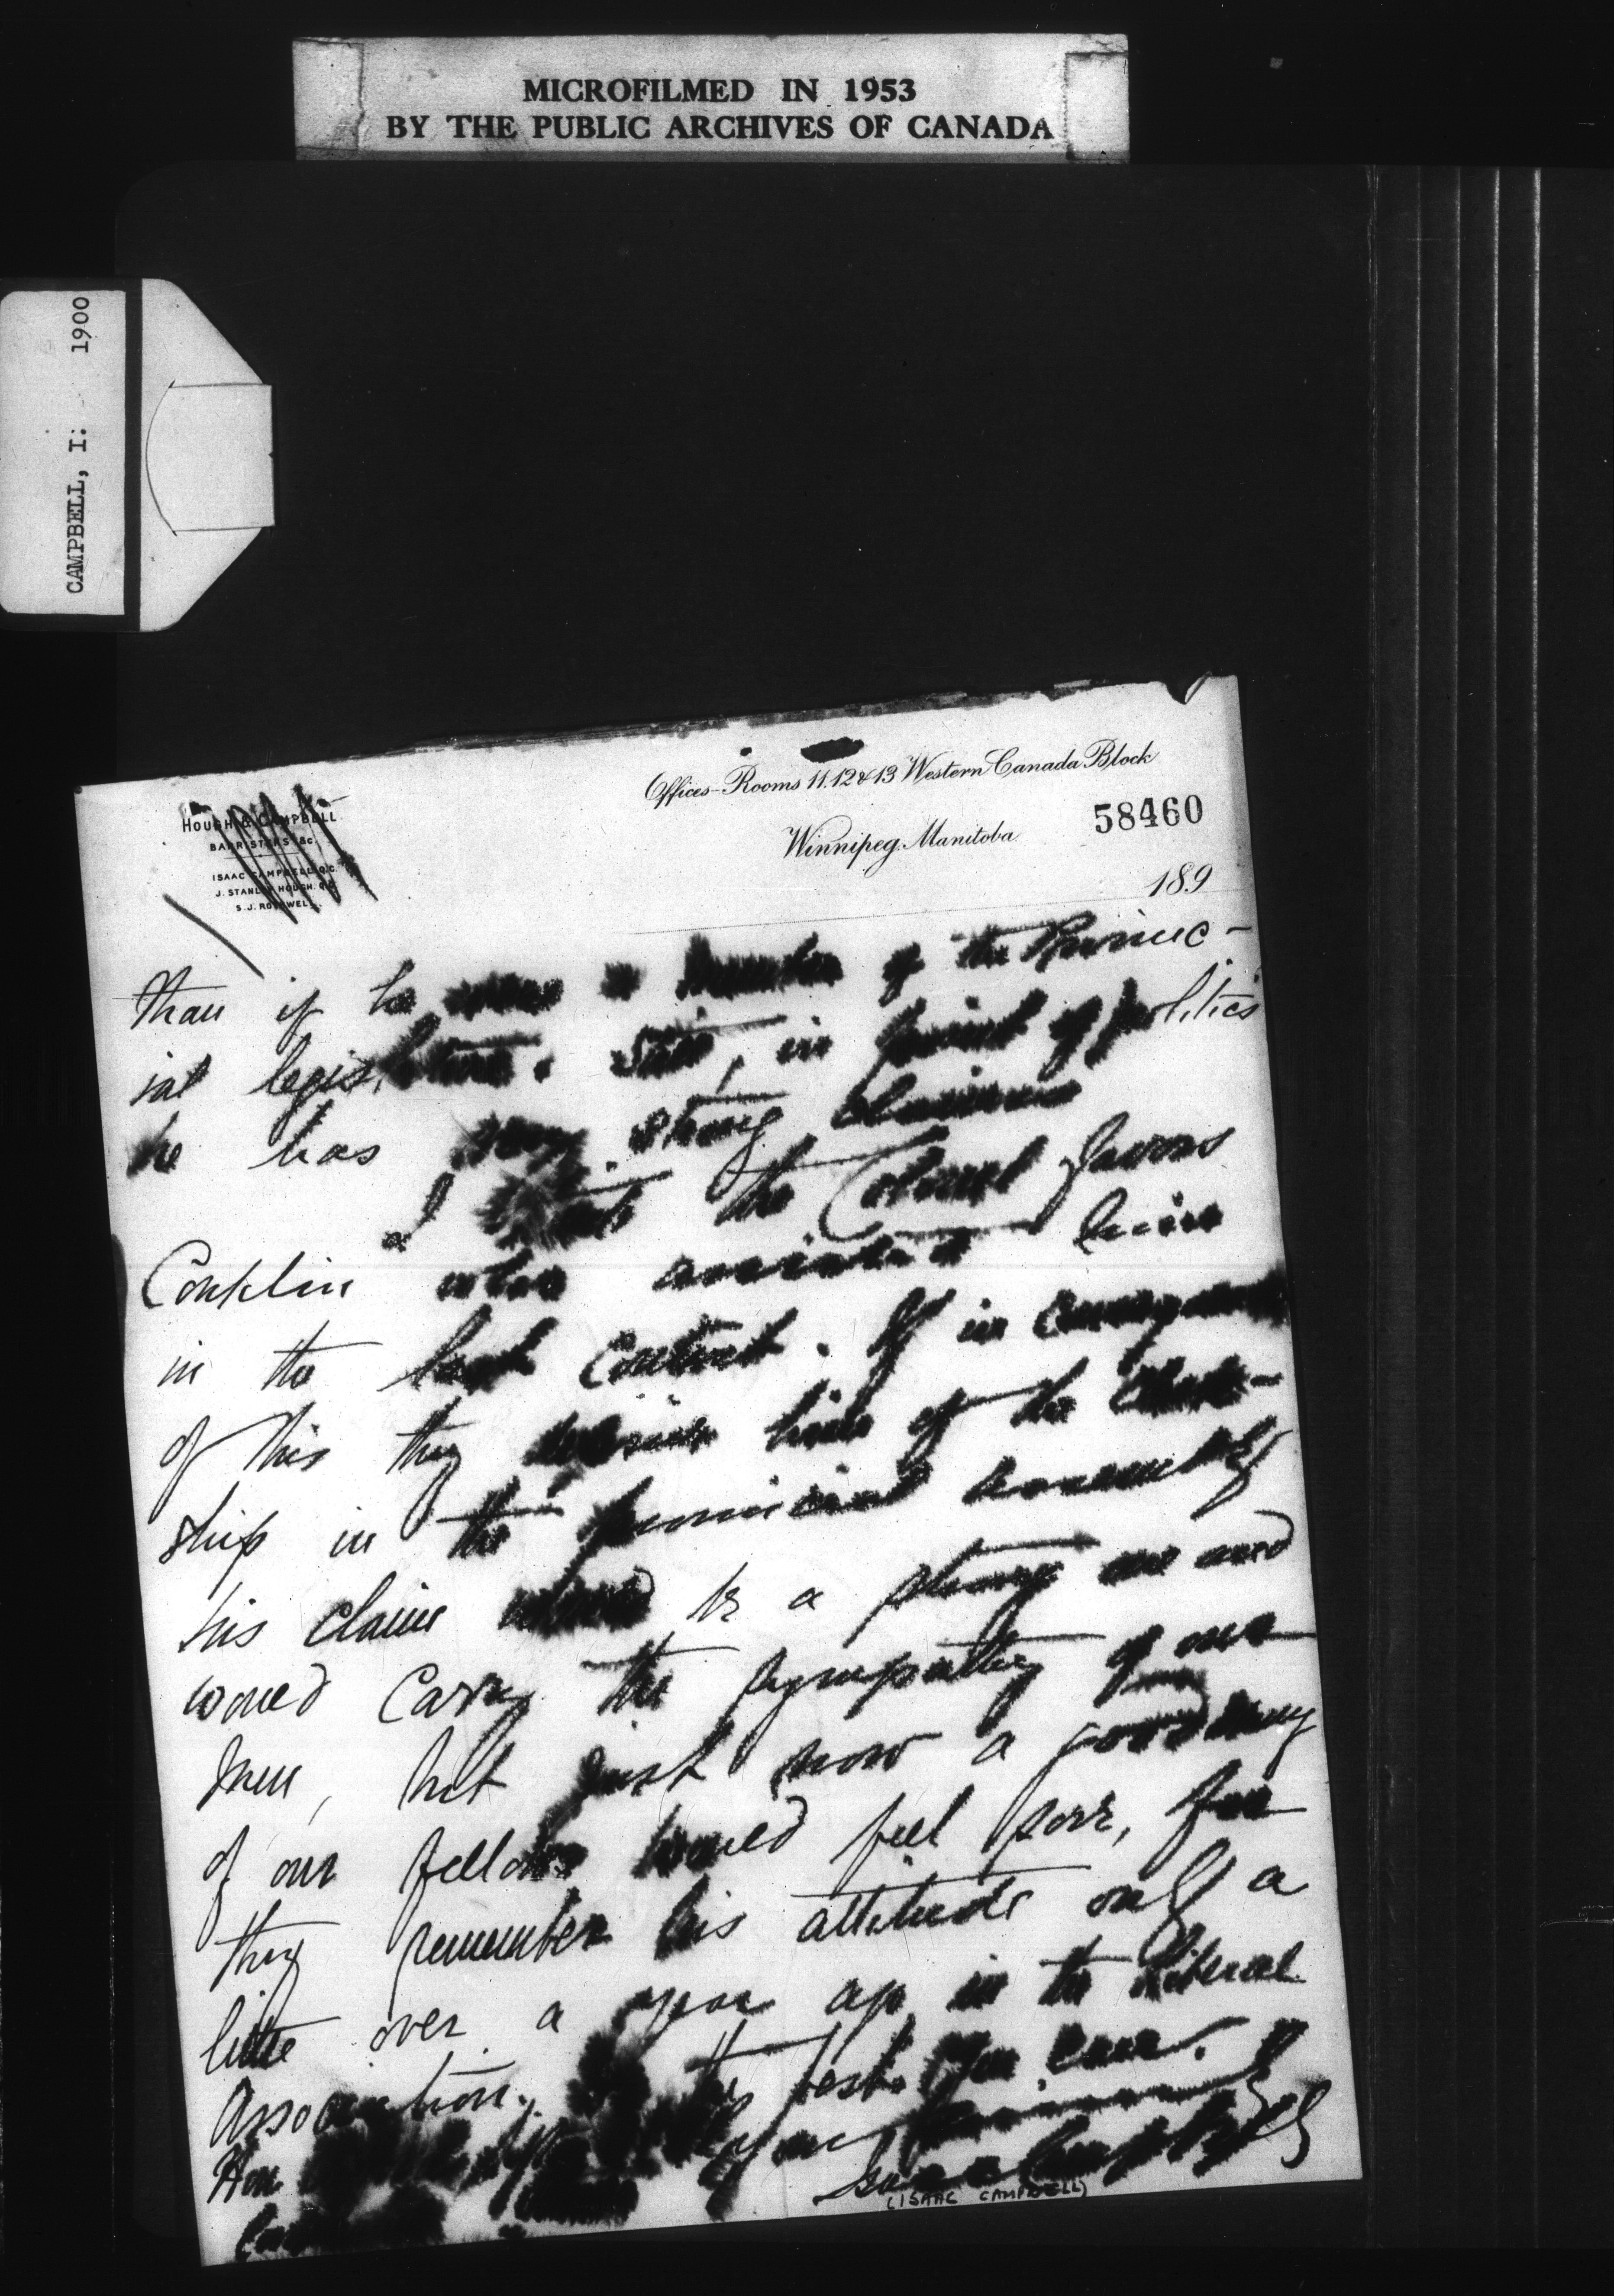 MICROFILMED IN 1953
BY THE PUBLIC ARCHIVES OF CANADA
CAMPBELL, I: 1900
Offices-Rooms 11.12 & 13 Western Canada Block
Winnipeg, Manitoba
58460
189
HOUGH & CAMPBELL
BARRISTERS &c.
ISAAC CAMPBELL Q.C.
J. STANLEY HOUGH. Q.C.
S.J. ROTHWELL.
than if he were a member of the Provinc-
ial legislature. Still, in point of politics
he has very strong claims
I the Colonel favors
Conklin who assisted him
in the last contest. If in consequence
of this they deprive him of the Clerk-
ship in the provincial assembly
his claim would be a strong one and
would carry the sympathy of our
men, but just now a good many
of our fellows would feel sore, for
they remember his attitude only a
little over a year ago in the Liberal
Association. the best you can.
Hon
Isaac Campbell
(ISAAC CAMPBELL)